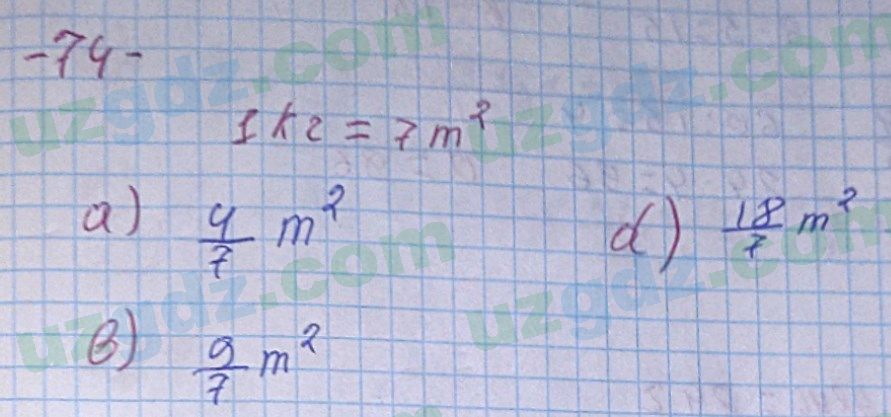 -74-
1 кг = 7 m²
a) 4/7 m²
d) 18/7 m²
в) 9/7 m²
uzgdz.com
uzgdz.com
uzgdz.com
uzgdz.com